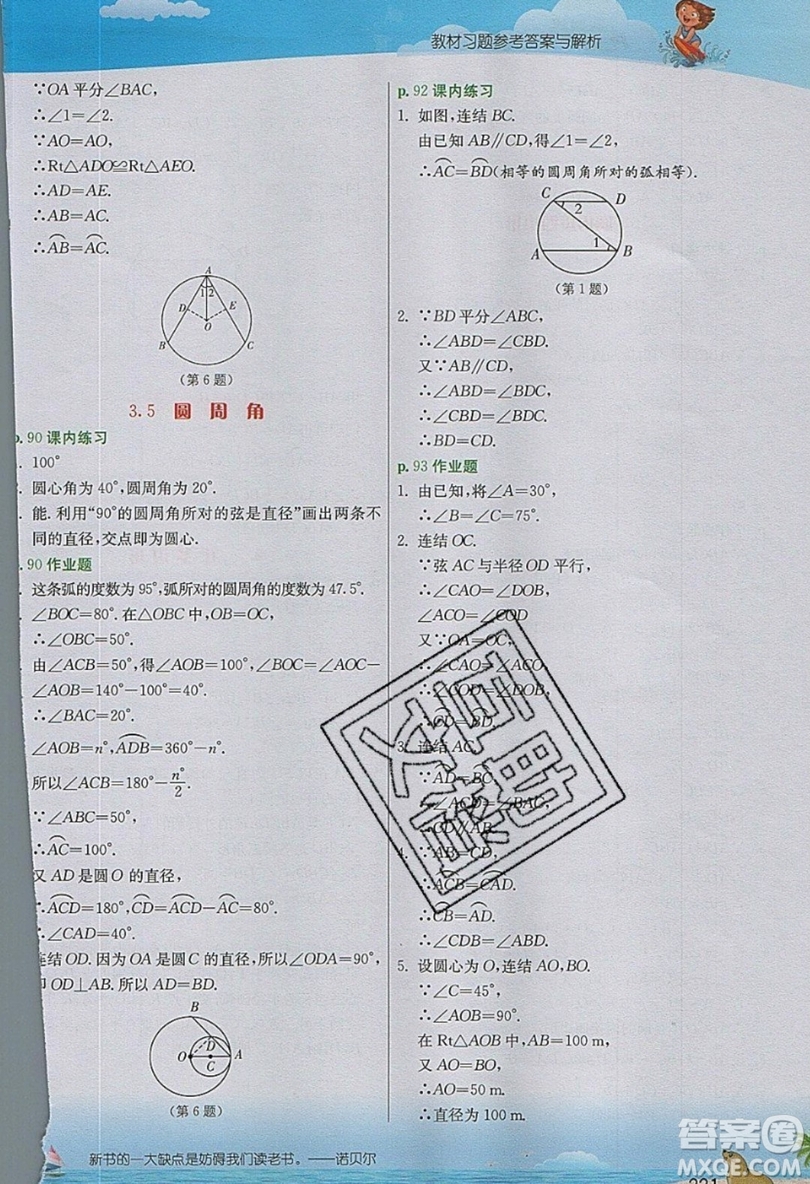 教材习题参考答案与解析
∵OA平分∠BAC,
∴∠1=∠2.
∵AO=AO,
∴Rt△ADO≌Rt△AEO.
∴AD=AE.
∴AB=AC.
∴AB=AC.
A
1 2
D E
O
B C
(第6题)
3.5 圆周角
.90课内练习
100°
圆心角为40°,圆周角为20°.
能. 利用“90°的圆周角所对的弦是直径”画出两条不
同的直径,交点即为圆心.
.90作业题
这条弧的度数为95°,弧所对的圆周角的度数为47.5°.
∠BOC=80°. 在△OBC中,OB=OC,
∴∠OBC=50°.
由∠ACB=50°,得∠AOB=100°,∠BOC=∠AOC-
∠AOB=140°-100°=40°.
∴∠BAC=20°.
∠AOB=n°,ADB=360°-n°.
所以∠ACB=180°-n°/2.
∵∠ABC=50°,
∴AC=100°.
又AD是圆O的直径,
∴ACD=180°,CD=ACD-AC=80°.
∴∠CAD=40°.
连结OD. 因为OA是圆C的直径,所以∠ODA=90°,
即OD⊥AB. 所以AD=BD.
B
D
O A
C
(第6题)
p.92课内练习
1. 如图,连结BC.
由已知AB∥CD,得∠1=∠2,
∴AC=BD(相等的圆周角所对的弧相等).
C D
2
1
A B
(第1题)
2. ∵BD平分∠ABC,
∴∠ABD=∠CBD.
又∵AB∥CD,
∴∠ABD=∠BDC.
∴∠CBD=∠BDC.
∴BD=CD.
p.93作业题
1. 由已知,将∠A=30°,
∴∠B=∠C=75°.
2. 连结OC.
∵弦AC与半径OD平行,
∴∠CAO=∠DOB,
∠ACO=∠COD
又∵OA=OC,
∴∠CAO=∠ACO.
∴∠COD=∠DOB,
∴CD=BD.
3. 连结AC.
∵AD=BC,
∴∠ACD=∠BAC,
∴CD∥AB.
4. ∵AB=CD,
∴ACB=CAD.
∴CB=AD.
∴∠CDB=∠ABC.
5. 设圆心为O,连结AO,BO.
∵∠C=45°,
∴∠AOB=90°.
在Rt△AOB中,AB=100 m,
又AO=BO,
∴AO=50 m.
∴直径为100 m.
互助
文精
新书的一大缺点是妨碍我们读老书。——诺贝尔
答案圈
MXQE.COM